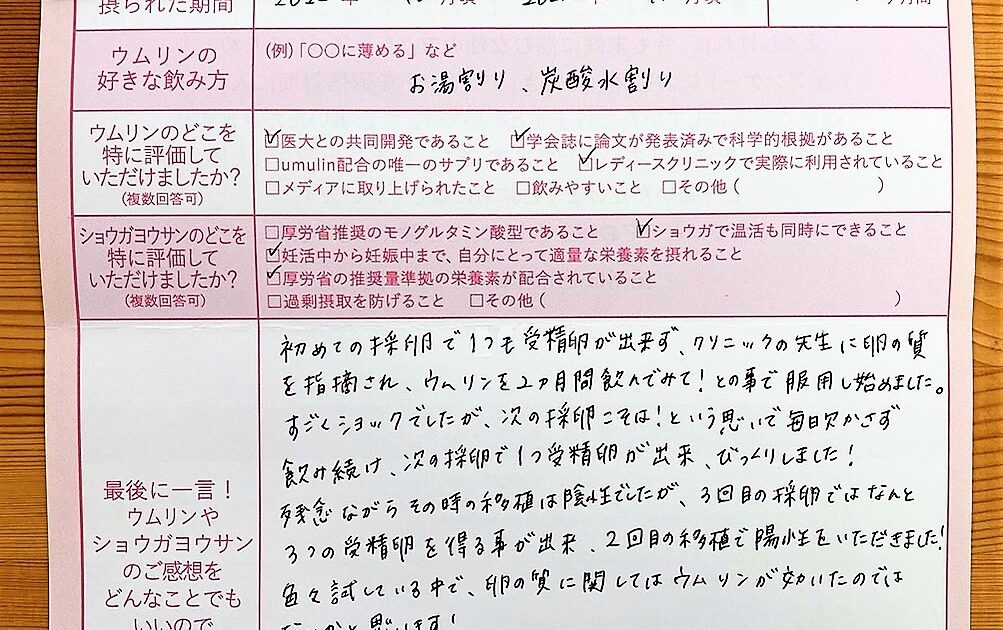 摂られた期間
月頃
ヶ月間
ウムリンの
好きな飲み方
(例)「〇〇に薄める」など
お湯割り、炭酸水割り
ウムリンのどこを
特に評価して
いただけましたか?
(複数回答可)
☑医大との共同開発であること ☑学会誌に論文が発表済みで科学的根拠があること
□umulin配合の唯一のサプリであること ☑レディースクリニックで実際に利用されていること
□メディアに取り上げられたこと □飲みやすいこと □その他( )
ショウガヨウサンのどこを
特に評価して
いただけましたか?
(複数回答可)
□厚労省推奨のモノグルタミン酸型であること ☑ショウガで温活も同時にできること
☑妊活中から妊娠中まで、自分にとって適量な栄養素を摂れること
☑厚労省の推奨量準拠の栄養素が配合されていること
□過剰摂取を防げること □その他( )
最後に一言!
ウムリンや
ショウガヨウサン
のご感想を
どんなことでも
いいので
初めての採卵で1つも受精卵が出来ず、クリニックの先生に卵の質
を指摘され、ウムリンを2ヵ月間飲んでみて!との事で服用し始めました。
すごくショックでしたが、次の採卵こそは!という思いで毎日欠かさず
飲み続け、次の採卵で1つ受精卵が出来、びっくりしました!
残念ながらその時の移植は陰性でしたが、3回目の採卵ではなんと
3つの受精卵を得る事が出来、2回目の移植で陽性をいただきました!
色々試している中で、卵の質に関してはウムリンが効いたのでは
ないかと思います!